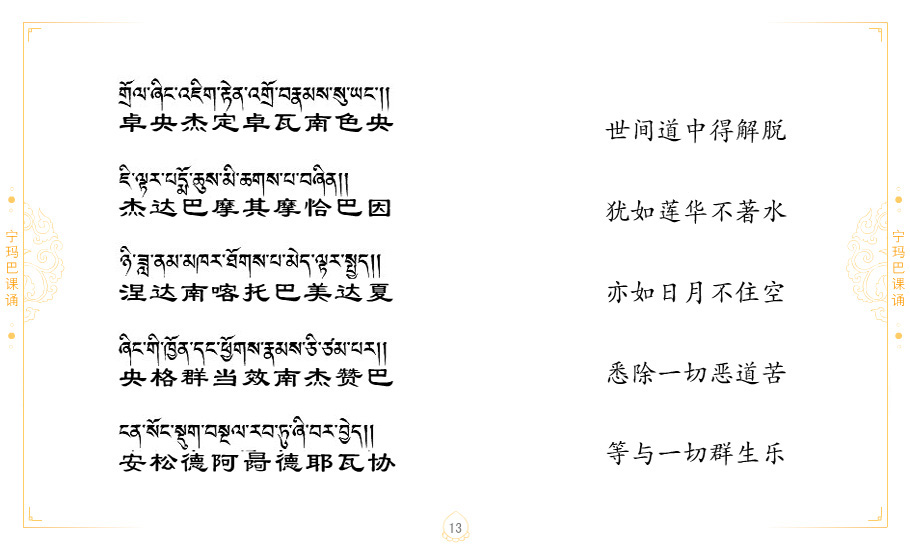 གྲོལ་ཞིང་འཇིག་རྟེན་འགྲོ་བརྣམས་སུ་ཡང་།།
卓央杰定卓瓦南色央
ཇི་ལྟར་པདྨོ་ཆུས་མི་ཆགས་པ་བཞིན།།
杰达巴摩其摩恰巴因
ཉི་ཟླ་ནམ་མཁར་ཐོགས་པ་མེད་ལྟར་སྤྱད།།
涅达南喀托巴美达夏
ཞིང་གི་ཁྱོན་དང་ཕྱོགས་རྣམས་ཅི་ཙམ་པར།།
央格群当效南杰赞巴
ངན་སོང་སྡུག་བསྔལ་རབ་ཏུ་ཞི་བར་བྱེད།།
安松德阿德耶瓦协
世间道中得解脱
犹如莲华不著水
亦如日月不住空
悉除一切恶道苦
等与一切群生乐
宁玛巴课诵
宁玛巴课诵
13